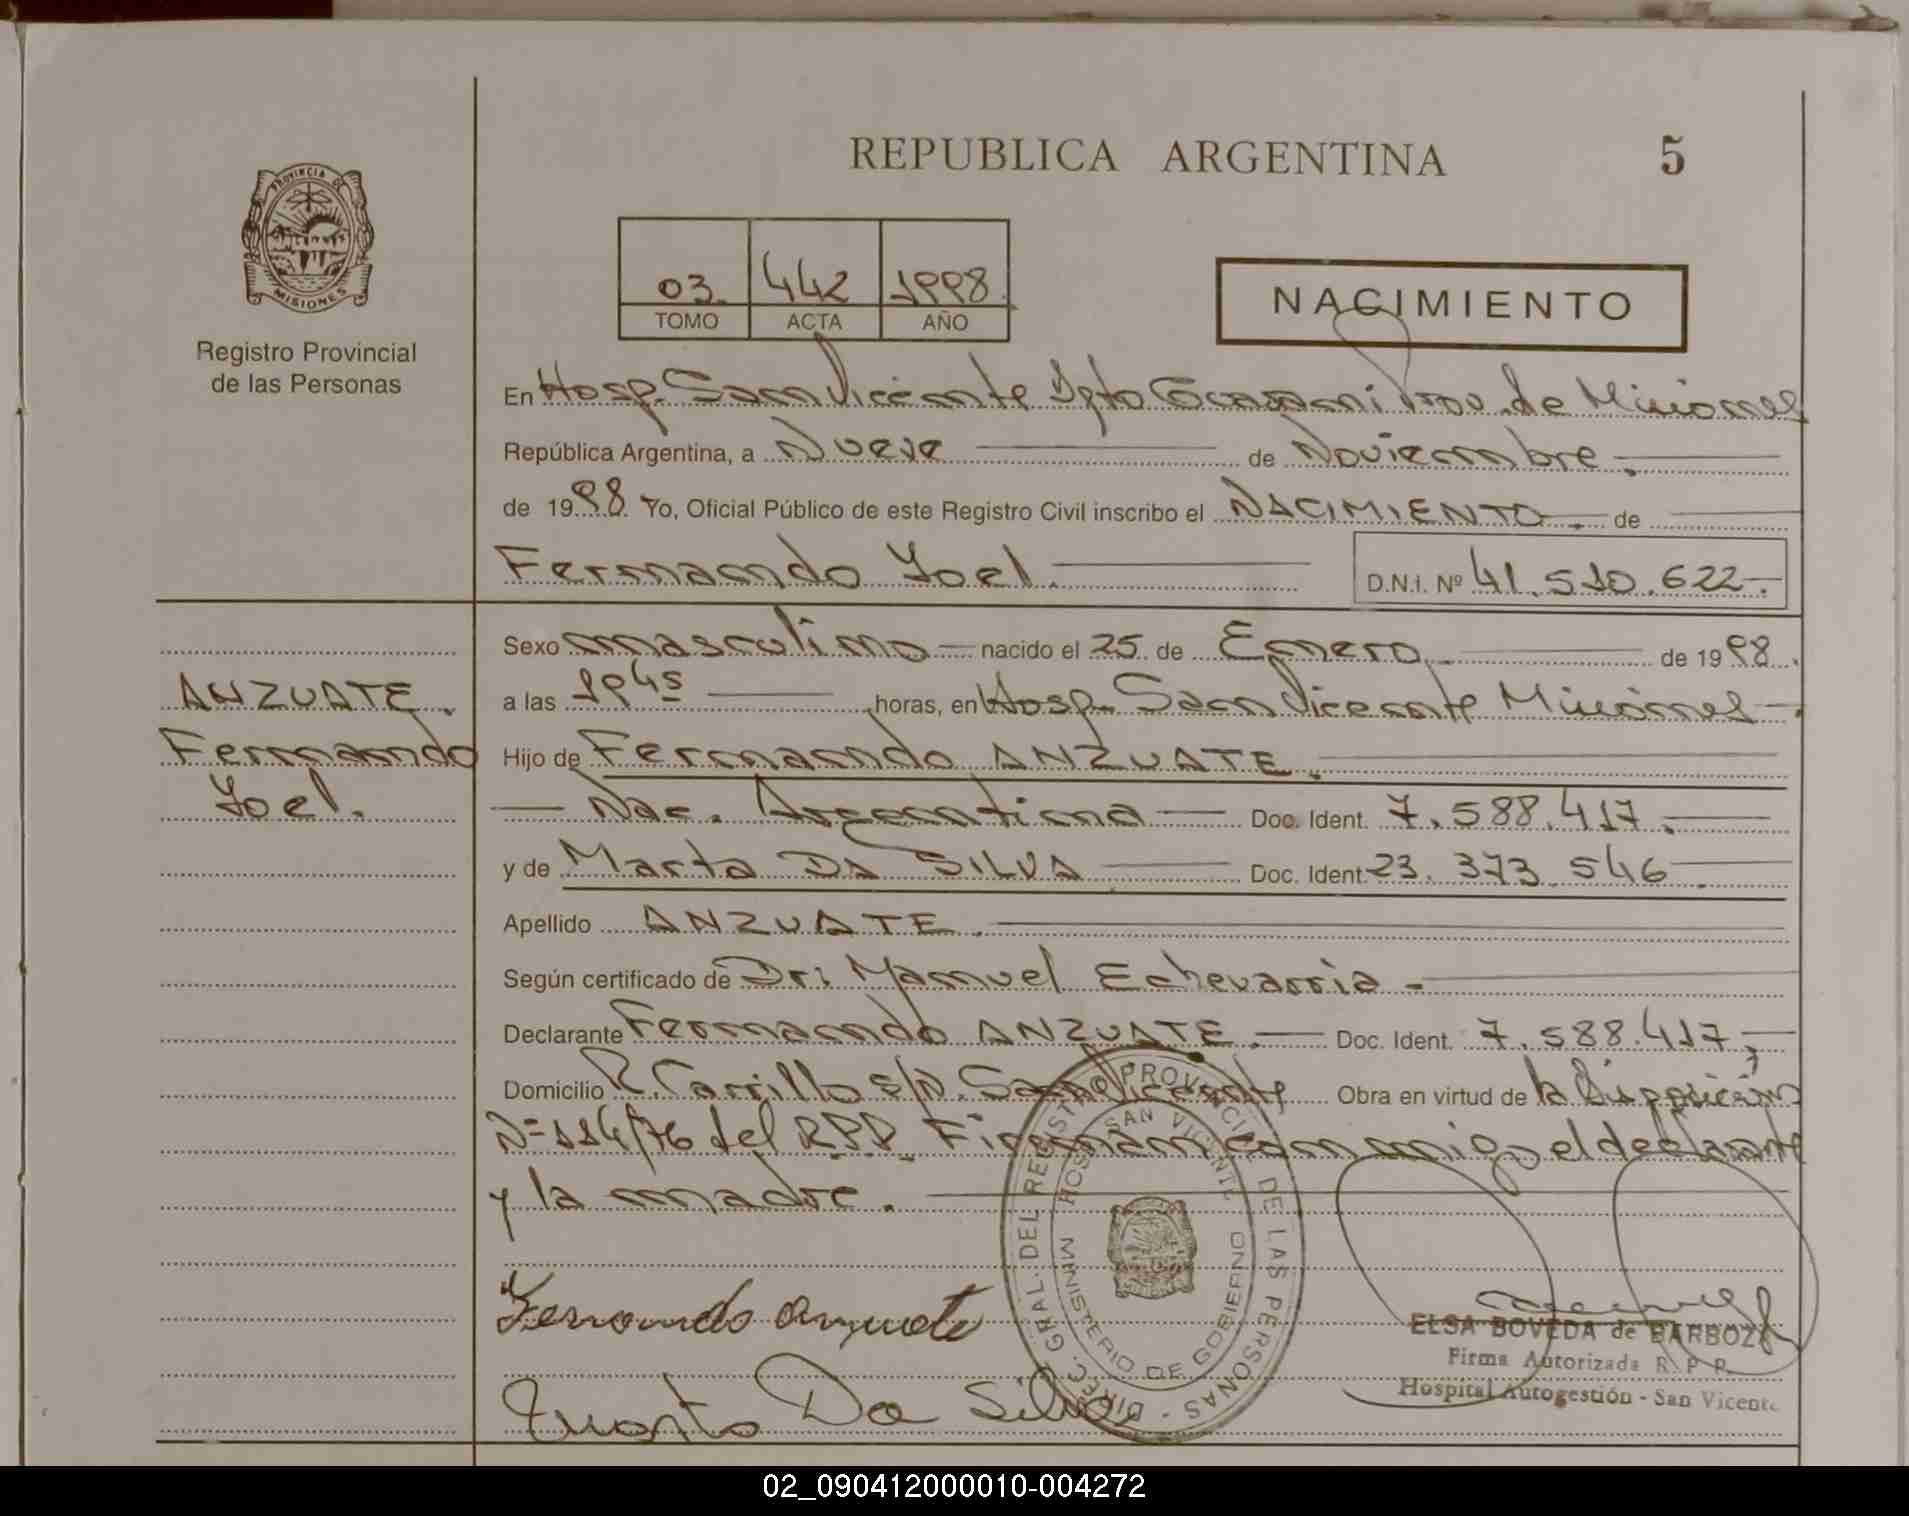 REPUBLICA ARGENTINA
5
PROVINCIA DE
MISIONES
Registro Provincial
de las Personas
03 442 1998
TOMO ACTA AÑO
NACIMIENTO
En Hosp. San Vicente Dpto Guaraní Prov. de Misiones
República Argentina, a Nueve de Noviembre.
de 1998. Yo, Oficial Público de este Registro Civil inscribo el NACIMIENTO. de
Fernando Yoel.
D.N.I. Nº 41.510.622.-
Sexo masculino nacido el 25 de Enero de 1998.
a las 19 45 horas, en Hosp. San Vicente Misiones
ANZUATE.
Fernando
Yoel.
Hijo de Fernando ANZUATE.
Nac. Argentina Doc. Ident. 7.588.417.
y de Marta DA SILVA Doc. Ident. 23.373.546
Apellido ANZUATE.
Según certificado de Dr: Manuel Echevarria
Declarante Fernando ANZUATE. Doc. Ident. 7.588.417,
Domicilio R. Carrillo s/N. San Vicente Obra en virtud de la Disposición
Nº 114/76 del RPP. Firman conmigo el declarante
y la madre.
DIREC. GRAL. DEL REGISTRO PROVINCIAL DE LAS PERSONAS -
HOSP. SAN VICENTE
MINISTERIO DE GOBIERNO
Fernando Anzuate
Marta Da Silva
ELSA BOVEDA de BARBOZA
Firma Autorizada R. P. P.
Hospital Autogestión - San Vicente
02_090412000010-004272